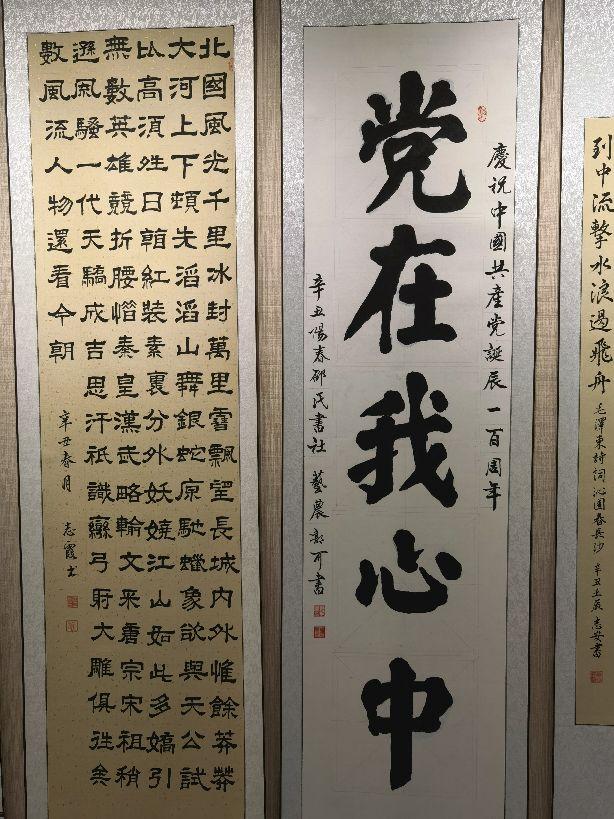 到中流擊水浪遏飛舟
毛澤東詩詞沁園春長沙 辛丑 志安書
慶祝中國共產党誕辰一百周年
党在我心中
辛丑陽春邵氏書社 藝農 可書
北國風光千里冰封萬里雪飄望長城内外惟餘莽莽
大河上下頓失滔滔山舞銀蛇原馳蠟象欲與天公試
比高須晴日看紅裝素裹分外妖嬈江山如此多嬌引
無數英雄競折腰惜秦皇漢武略輸文采唐宗宋祖稍
遜風騷一代天驕成吉思汗祇識彎弓射大雕俱往矣
數風流人物還看今朝
辛丑春月 志霞書